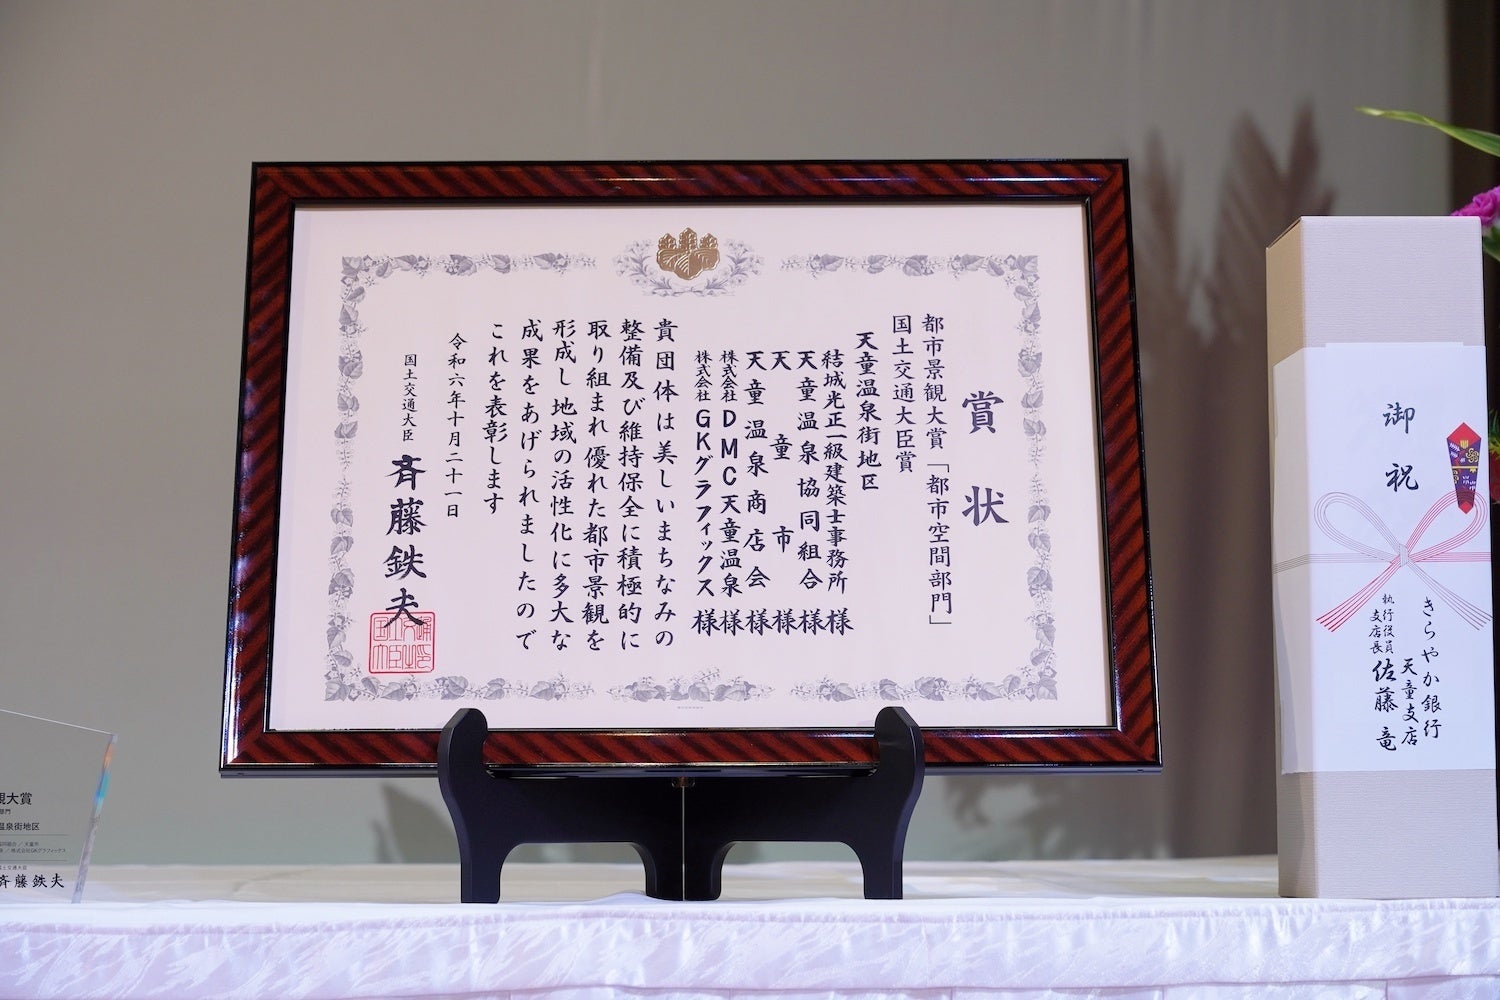 賞状
都市景観大賞「都市空間部門」
国土交通大臣賞
天童温泉街地区
結城光正一級建築士事務所様
天童温泉協同組合様
天童市様
天童温泉商店会様
株式会社DMC天童温泉様
株式会社GKグラフィックス様
貴団体は美しいまちなみの
整備及び維持保全に積極的に
取り組まれ優れた都市景観を
形成し地域の活性化に多大な
成果をあげられましたので
これを表彰します
令和六年十月二十一日
国土交通大臣 斉藤鉄夫
国土交通大臣之印
御祝
きらやか銀行
天童支店
執行役員
支店長 佐藤竜
観大賞
部門
温泉街地区
協同組合／天童市
株式会社GKグラフィックス
国土交通大臣
斉藤鉄夫